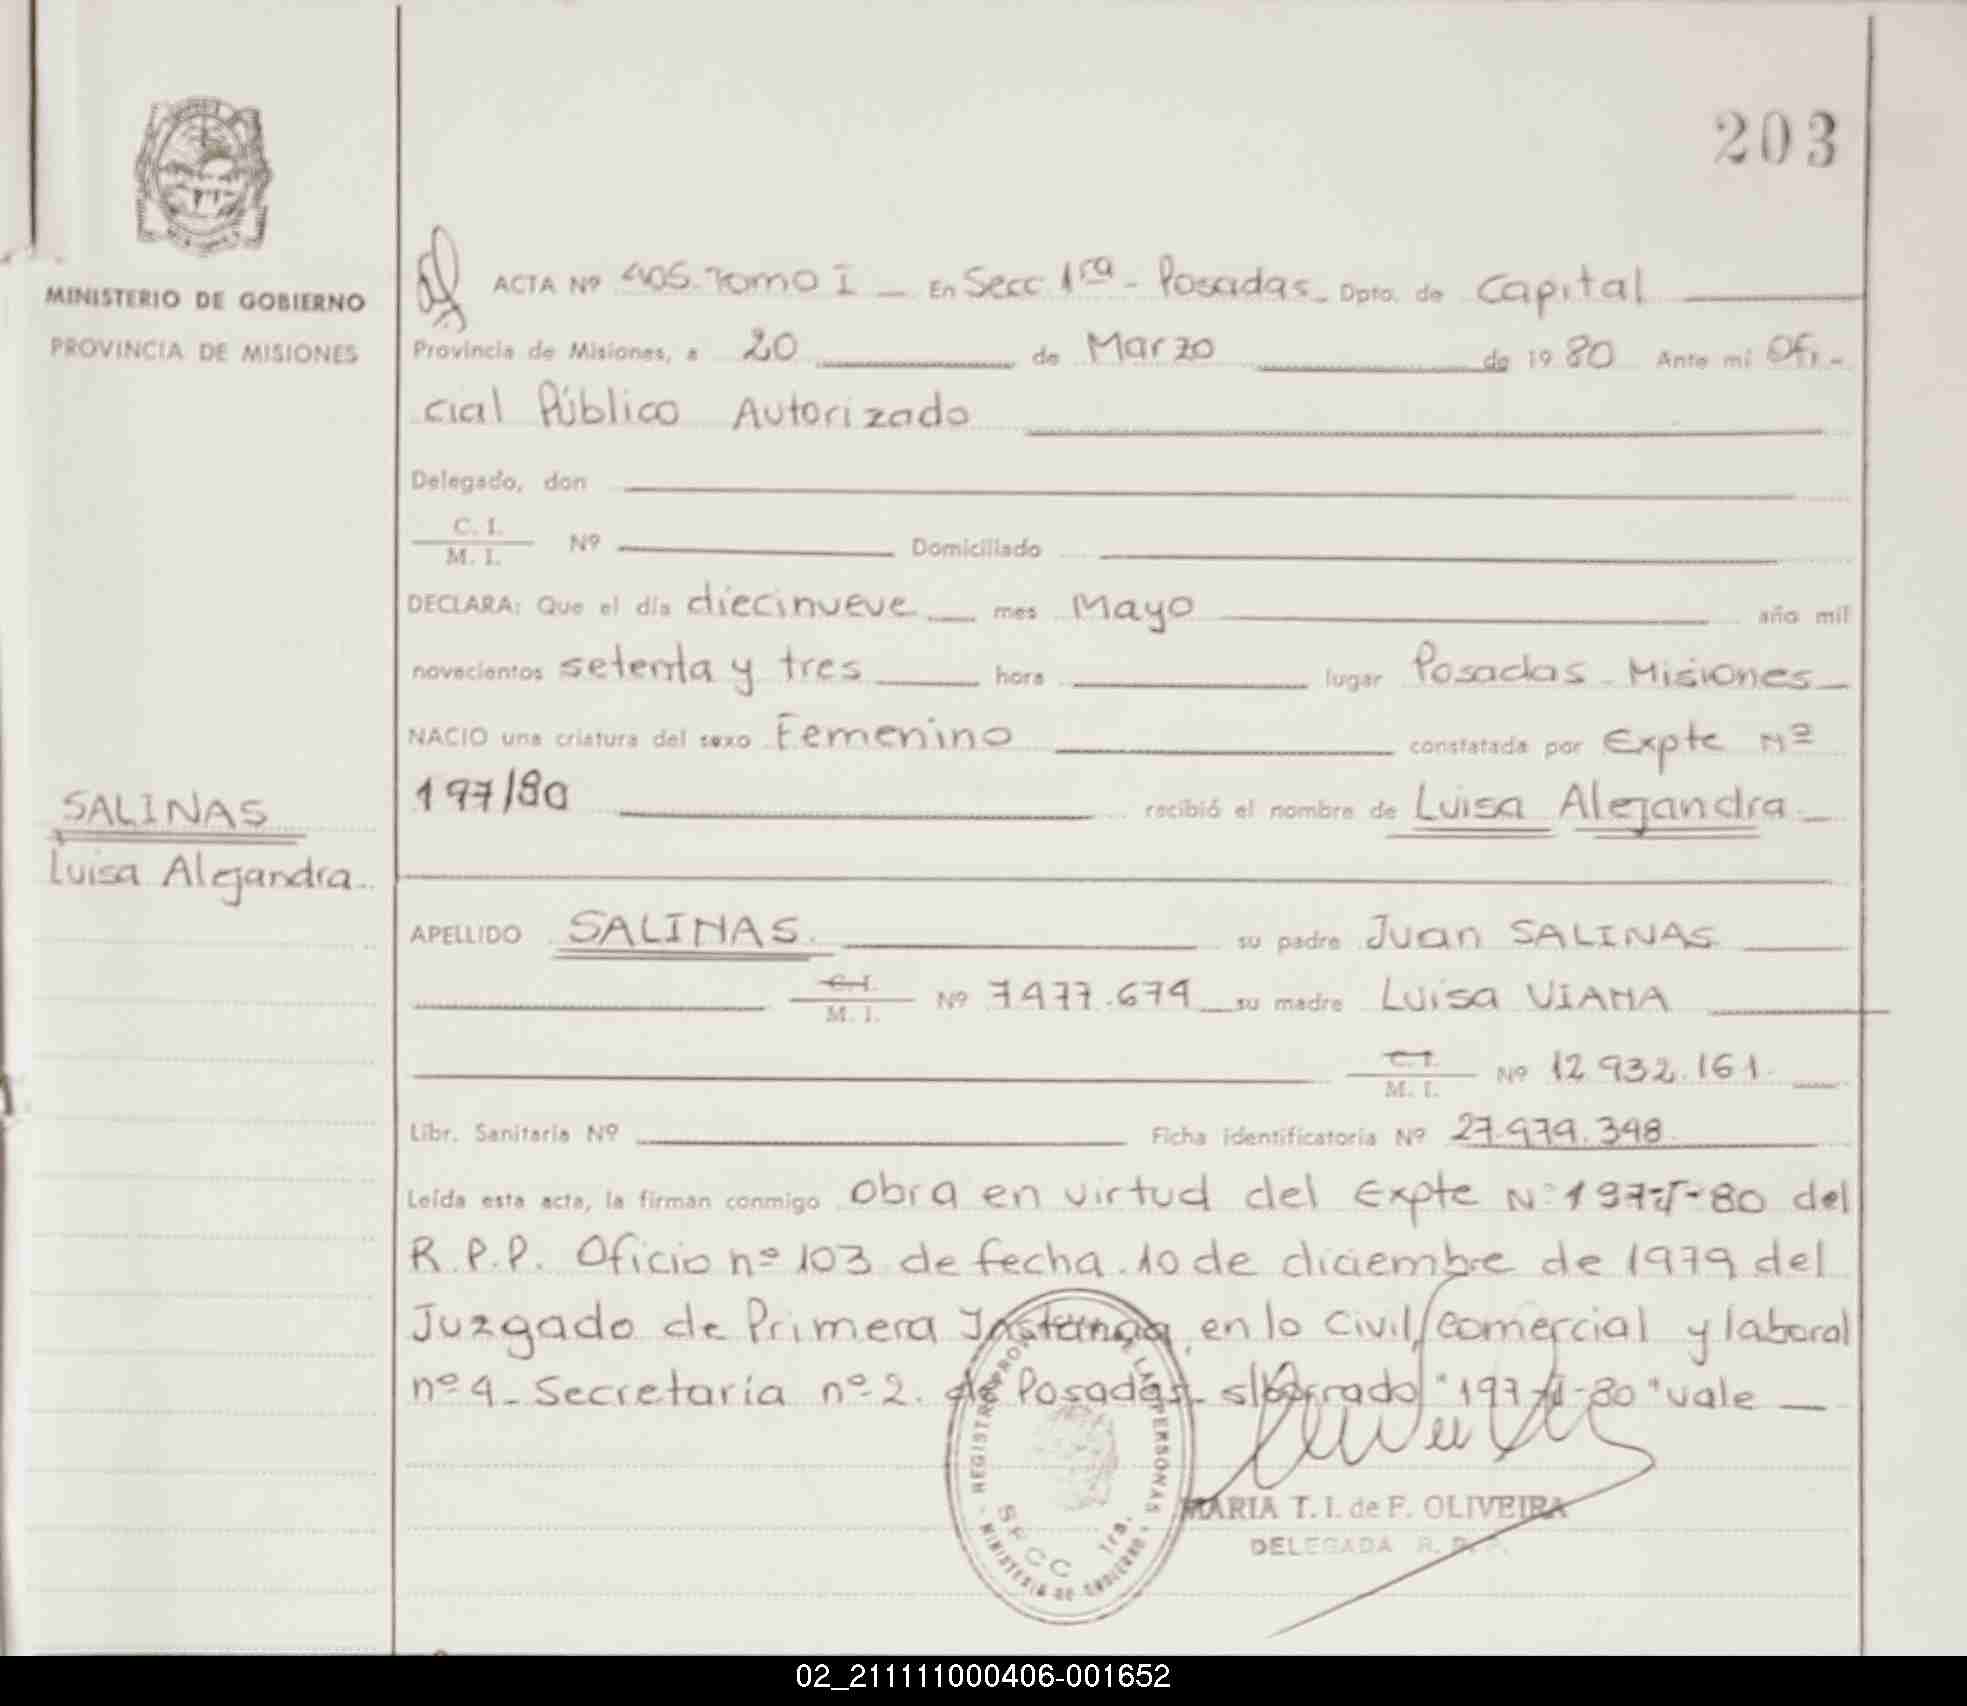 203
MINISTERIO DE GOBIERNO
PROVINCIA DE MISIONES
ACTA Nº 405. Tomo I — En Secc 1ra - Posadas - Dpto. de Capital
Provincia de Misiones, a 20 de Marzo de 1980 Ante mi Ofi-
cial Público Autorizado
Delegado, don
C. I.
M. I. Nº Domiciliado
DECLARA: Que el día diecinueve mes Mayo año mil
novecientos setenta y tres hora lugar Posadas - Misiones
NACIO una criatura del sexo Femenino constatada por Expte Nº
197/80 recibió el nombre de Luisa Alejandra
SALINAS
Luisa Alejandra
APELLIDO SALINAS. su padre Juan SALINAS
C. I.
M. I. Nº 7477.674 su madre Luisa VIANA
C. I.
M. I. Nº 12.932.161.
Libr. Sanitaria Nº Ficha identificatoria Nº 27.979.398
Leída esta acta, la firman conmigo obra en virtud del Expte Nº 197-I-80 del
R.P.P. Oficio nº 103 de fecha 10 de diciembre de 1979 del
Juzgado de Primera en lo Civil, comercial y laboral
nº 4 - Secretaria nº 2. de Posadas - s/borrado "197-I-80" vale
REGISTRO PROV. DE LAS PERSONAS
SECC 1ra.
MINISTERIO DE GOBIERNO
MARIA T. I. de F. OLIVEIRA
DELEGADA R. P. P.
02_211111000406-001652